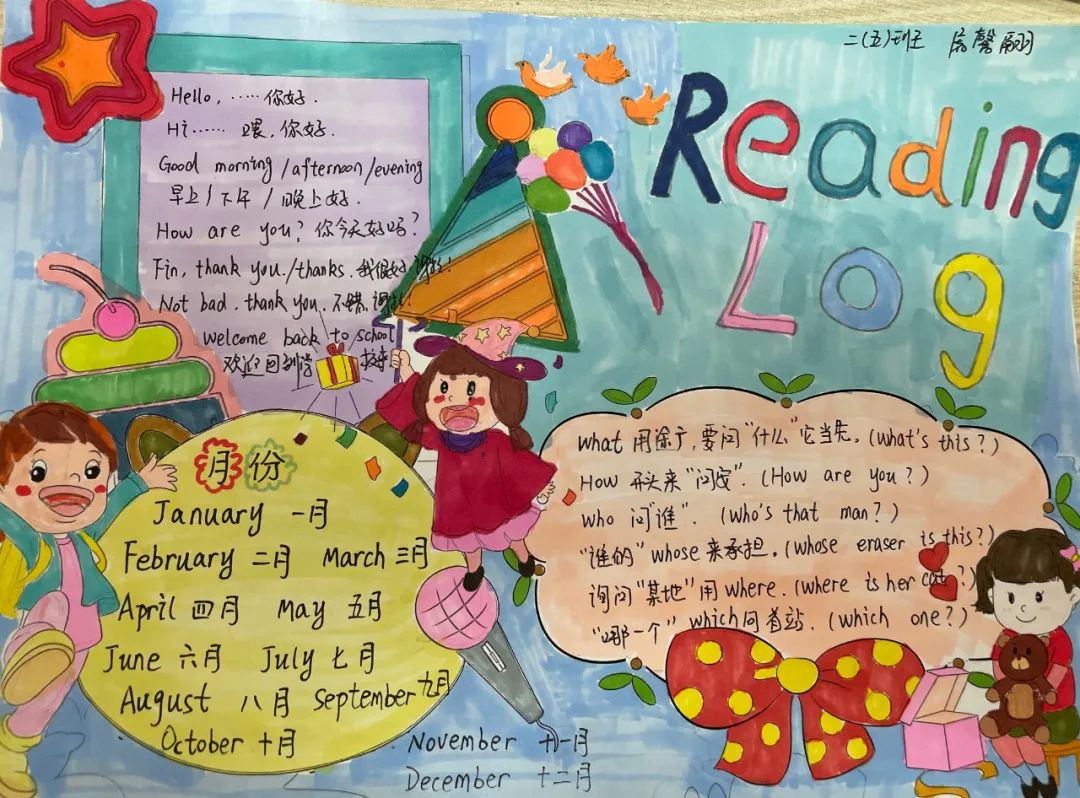 二(五)班
Reading
Log
Hello, ……你好.
Hi …… 喂,你好.
Good morning /afternoon /evening
早上/下午/晚上好.
How are you? 你今天好吗?
Fin, thank you./thanks. 我很好,谢谢!
Not bad. thank you. 不错,谢谢!
Welcome back to school
欢迎回到学校
月份
January 一月
February 二月 March 三月
April 四月 May 五月
June 六月 July 七月
August 八月 September 九月
October 十月
November 十一月
December 十二月
what 用途广,要问"什么"它当先.(what's this?)
How 开头来"问安".(How are you?)
who 问"谁".(who's that man?)
"谁的" whose 来承担.(whose eraser is this?)
询问"某地"用 where.(where is her cat?)
"哪一个" which 问着站.(which one?)